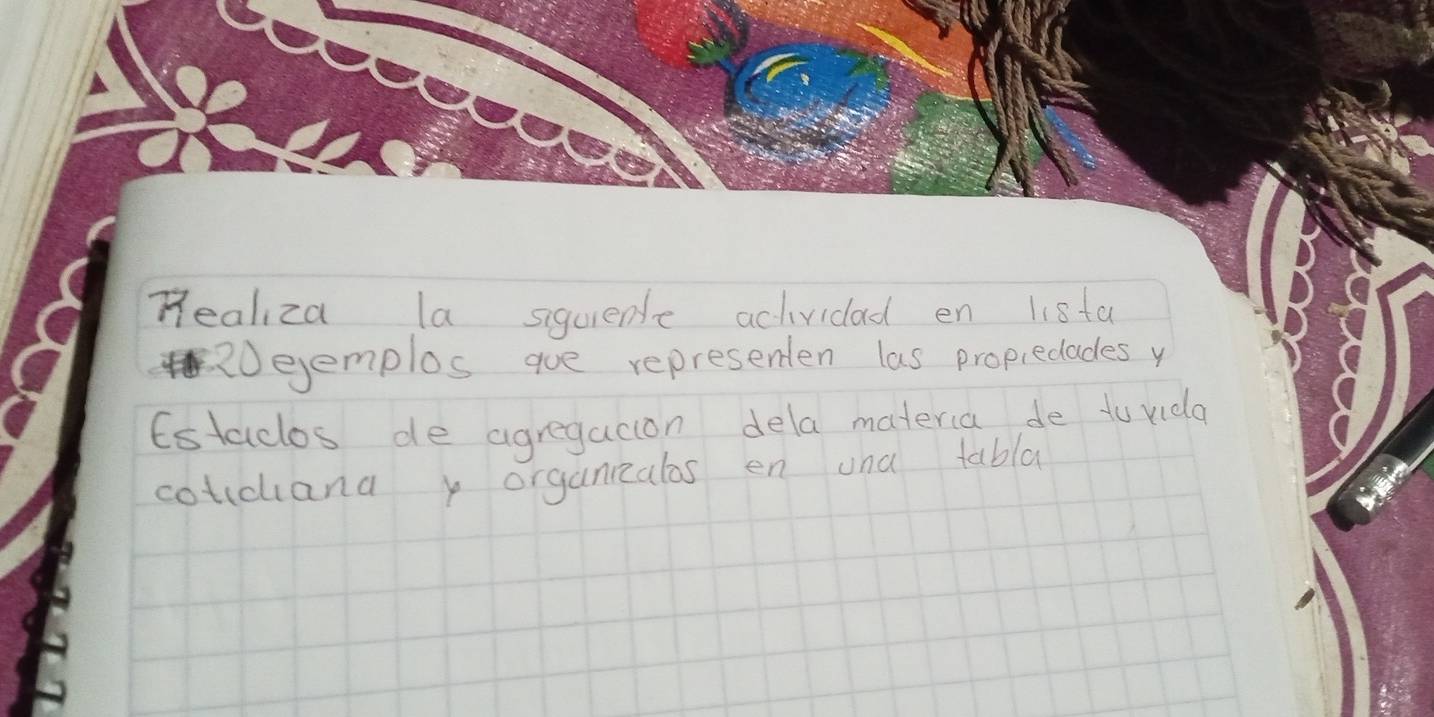 Realiza la siguiente actividad en lista
20 ejemplos que representen las propiedades y
Estados de agregacion dela materia de tu vida
cotidiana y organizalos en una tabla